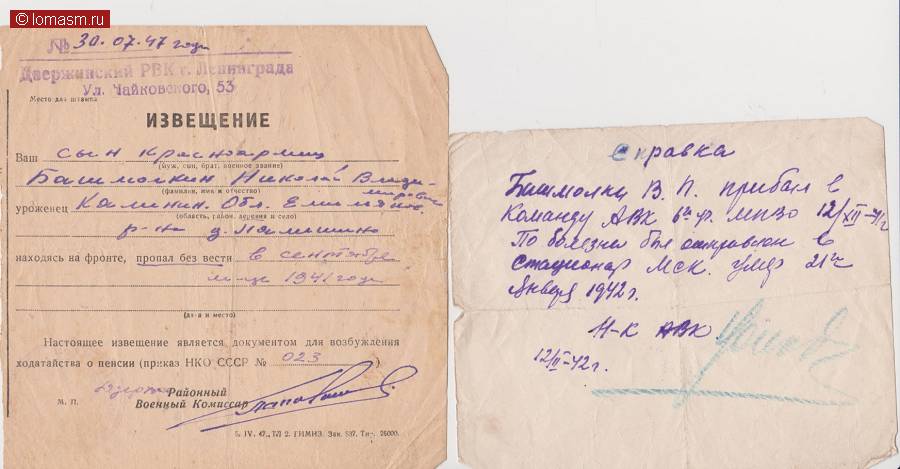 © lomasm.ru
№ 30.07.47 года
Дзержинский РВК г. Ленинграда
Ул. Чайковского, 53
Место для штампа
ИЗВЕЩЕНИЕ
Ваш сын красноармеец
(муж, сын, брат, военное звание)
Башмолкин Николай Влади-
мирович
(фамилия, имя и отчество)
уроженец Калинин. Обл.
(область, район, деревня и село)
р-на д.
находясь на фронте, пропал без вести в сентябре
м-це 1941 года
(дата и место)
Настоящее извещение является документом для возбуждения
ходатайства о пенсии (приказ НКО СССР № 023
М. П.
Районный
Военный Комиссар
5. IV. 47., ТЛ 2. ГИМИЗ. Зак. 537. Тир. 25000.
Справка
Башмолкин В. П. прибыл в
Команду АВК 12/XII-41г
По болезни был отправлен в
стационар МСК. Умер 21го
Января 1942г.
Н-к АВК
12/II-42г.